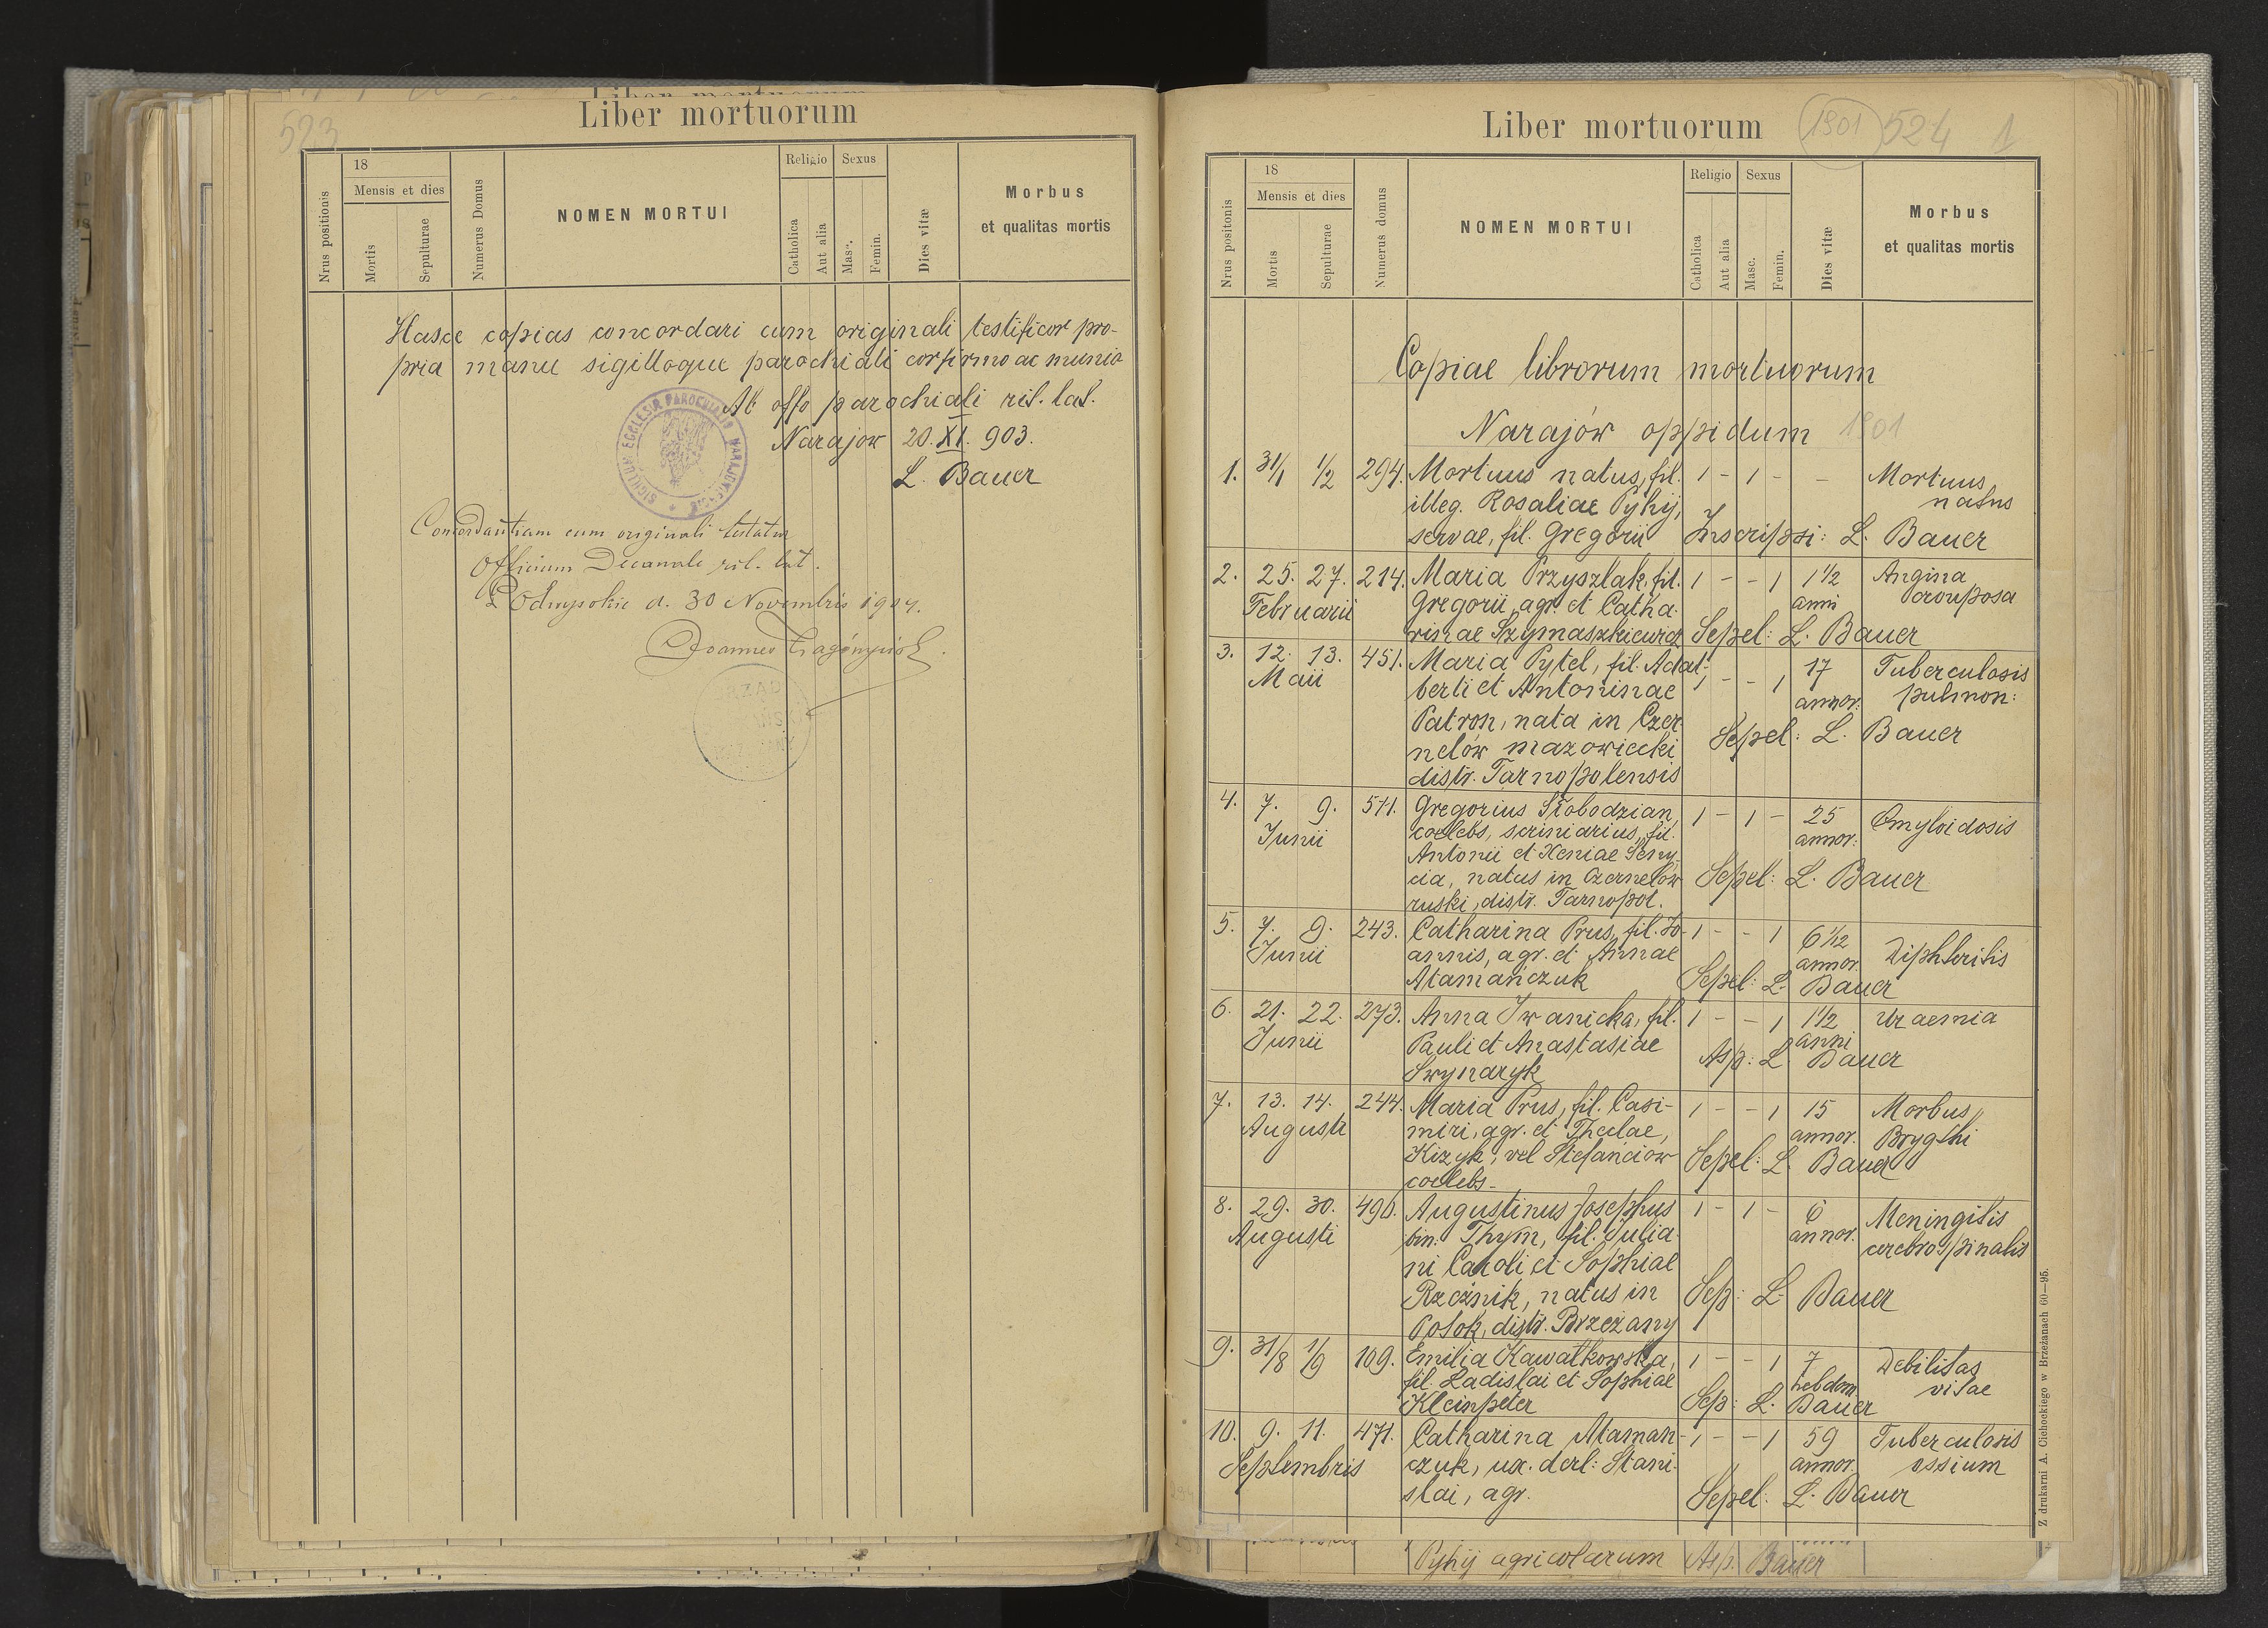 Liber mortuorum
523
Liber mortuorum
18
Mensis et dies
Religio
Sexus
Nrus positionis
Mortis
Sepulturae
Numerus Domus
NOMEN MORTUI
Catholica
Aut alia
Masc.
Femin.
Dies vitæ
Morbus
et qualitas mortis
Hasce copias concordari cum originali testificor pro-
pria manu sigilloque parochiali confirmo ac munio
Ab offo parochiali rit. lat.
Narajow 20. XI. 903.
L. Bauer
SIGILLUM ECCLESIÆ PAROCHIALIS NARAJOVIENSIS
Concordantiam cum originali testatur
Officium Decanale rit. lat.
Podwysokie d. 30 Novembris 1904.
Joannes
Liber mortuorum
1901 524 1
18
Mensis et dies
Religio
Sexus
Nrus positonis
Mortis
Sepulturae
Numerus domus
NOMEN MORTUI
Catholica
Aut alia
Masc.
Femin.
Dies vitæ
Morbus
et qualitas mortis
Copiae librorum mortuorum
Narajów oppidum 1901
1. 31/1 1/2 294. Mortuus natus, fil. 1 - 1 - - Mortuus
illeg. Rosaliae Pyhij, natus
servae, fil. Gregorii Inscripsi: L. Bauer
2. 25. 27. 214. Maria Przyszlak, fil. 1 - - 1 1 1/2 Angina
Februarii Gregorii, agr. et Catha- anni crouposa
rinae Szymaszkiewicz Sepel: L. Bauer
3. 12. 13. 451. Maria Pytel, fil. Adal- 17 Tuberculosis
Maii berti et Antoninae 1 - - 1 annor. pulmon:
Patron, nata in Czer-
nelów mazowiecki Sepel: L. Bauer
distr. Tarnopolensis
4. 7. 9. 511. Gregorius Słobodzian, 1 - 1 - 25 Omyloidosis
Junii coelebs, scriniarius, fil. annor:
Antonii et Xeniae Seny-
cia, natus in Czernelów Sepel: L. Bauer
ruski, distr. Tarnopol.
5. 7. 9. 243. Catharina Prus, fil. Jo- 1 - - 1 6 1/12 Diphteritis
Junii annis, agr. et Annae annor.
Atamańczuk Sepel: L. Bauer
6. 21. 22. 273. Anna Iwanicka, fil. 1 - - 1 1 1/2 Uraemia
Junii Pauli et Anastasiae anni
Swynaryk Asp: L Bauer
7. 13. 14. 244. Maria Prus, fil. Casi- 1 - - 1 15 Morbus
Augusti miri, agr. et Theclae, annor. Brygthi
Kizyk, vel Stefańciow Sepel: L. Bauer
coelebs-
8. 29. 30. 496. Augustinus Josephus 1 - 1 - 6 Meningitis
Augusti bin. Thym, fil. Julia- annor. cerebrospinalis
ni Caroli et Sophiae
Rzeźnik, natus in Sep: L. Bauer
Potok, distr. Brzeżany
9. 31/8 1/9 109. Emilia Kawałkowska, 1 - - 1 7 Debilitas
fil. Ladislai et Sophiae hebdom. vitae
Kleinpeter Sep: L. Bauer
10. 9. 11. 471. Catharina Ataman- 1 - - 1 59 Tuberculosis
Septembris czuk, ux. derl: Stani- annor. ossium
slai, agr. Sepel: L. Bauer
Z drukarni A. Ciehockiego w Brzeżanach 60—95.
Pyhij agricolarum Asp. Bauer